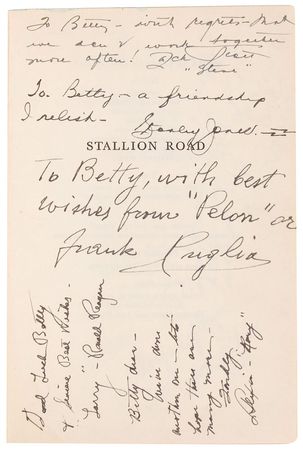 To Betty – with regrets – that
we don't work together
more often!
"Steve"
To Betty – a friendship
I relish –
Stanley Jones
STALLION ROAD
To Betty, with best
wishes from "Pelon" or
Frank Puglia
Good Luck Betty
& Sincere Best Wishes –
"Larry" – Ronald Reagan
Betty dear –
We've done
another one – let's
hope there are
many more –
Fondly,
Alexis "Rory"